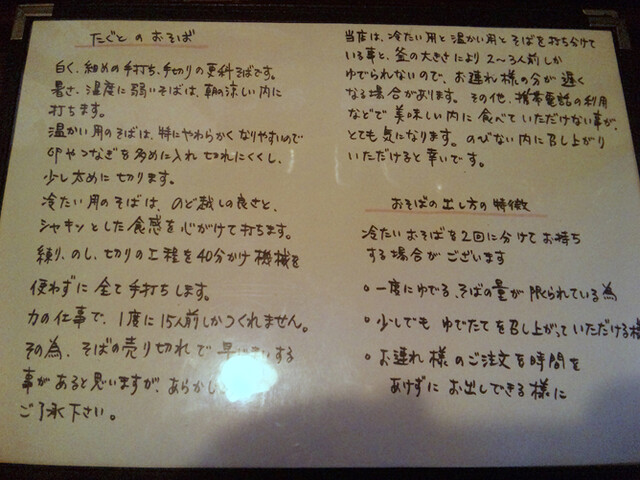 たごとのおそば
白く、細めの手打ち、手切りの更科そばです。
暑さ、湿度に弱いそばは、朝の涼しい内に
打ちます。
温かい用のそばは、特にやわらかくなりやすいので
卵やつなぎを多めに入れ切れにくくし、
少し太めに切ります。
冷たい用のそばは、のど越しの良さと、
シャキッとした食感を心がけて打ちます。
練り、のし、切りの工程を40分かけ機械を
使わずに全て手打ちします。
力の仕事で、1度に15人前しかつくれません。
その為、そばの売り切れで早じまいする
事があると思いますが、あらかじ
ご了承下さい。
当店は、冷たい用と温かい用とそばを打ち分けて
いる事と、釜の大きさにより2〜3人前しか
ゆでられないので、お連れ様の分が遅く
なる場合があります。その他、携帯電話の利用
などで美味しい内に食べていただけない事が、
とても気になります。のびない内に召し上がり
いただけると幸いです。
おそばの出し方の特徴
冷たいおそばを2回に分けてお持ち
する場合がございます
○一度にゆでる、そばの量が限られている為
○少しでもゆでたてを召し上がっていただける様
○お連れ様のご注文を時間を
あけずにお出しできる様に